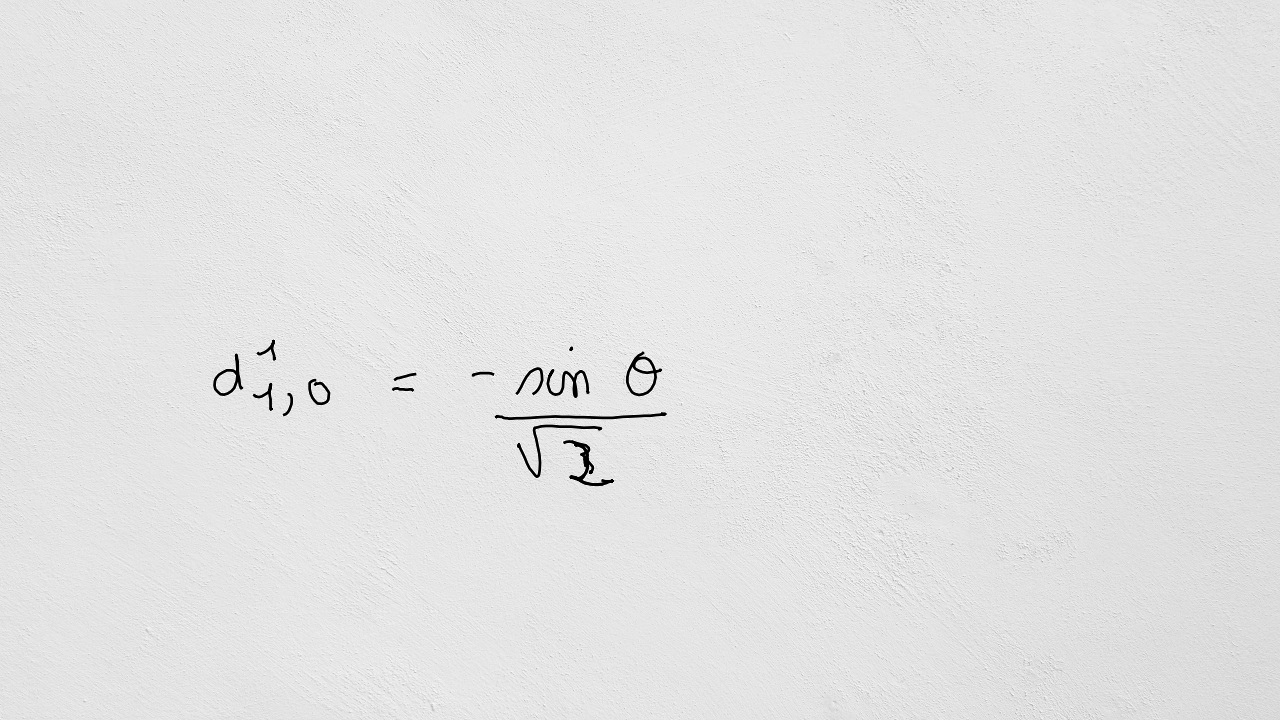 $d^{1}_{1,0} = \frac{-\sin \theta}{\sqrt{2}}$